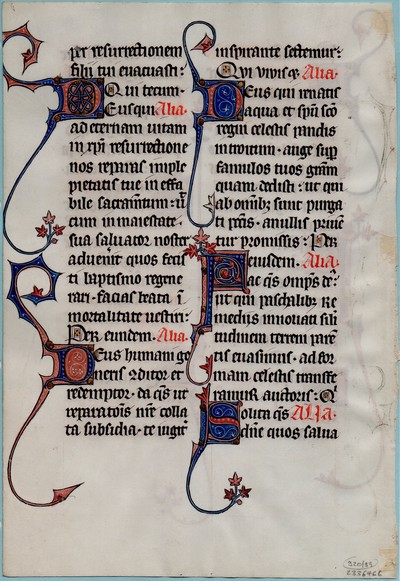 per resurrectionem
filii tui euacuasti:
Qui tecum.
Deus qui Alia.
ad eternam uitam
in xpi resurrectione
nos reparas imple
pietatis tue in effa
bile sacramtum: ut
cum in maiestate
sua saluator noster
aduenit quos fecis
ti baptismo regene
rari. facias beata i
mortalitate uestiri:
Per eundem. Alia.
Deus humani ge
neris conditor et
redemptor. da qs ut
reparatois nre colla
ta subsidia. te iugit
inspirante sectemur:
Qui uiuis &. Alia.
Deus qui renatis
aqua et spu sco
regni celestis pandis
introitum. auge sup
famulos tuos gram
quam dedisti: ut qui
ab omib; sunt purga
ti pctis. nullis priuen
tur promissis: Per
eiusdem. Alia.
Fac qs omps ds:
ut qui paschalib; re
mediis innouati sili
tudinem terreni paren
tis euasimus. ad for
mam celestis transfe
ramur auctoris: Q
Solita qs ALIA.
dne quos salua